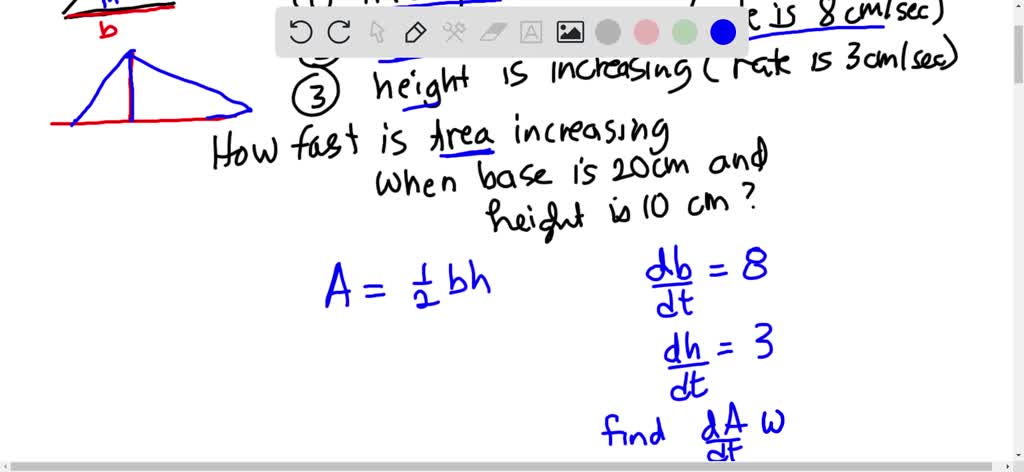 b
is 8 cm/sec)
③ height is increasing ( rate is 3cm/sec)
How fast is Area increasing
when base is 20cm and
height is 10 cm ?
A = 1/2 bh
db/dt = 8
dh/dt = 3
find dA/dt w